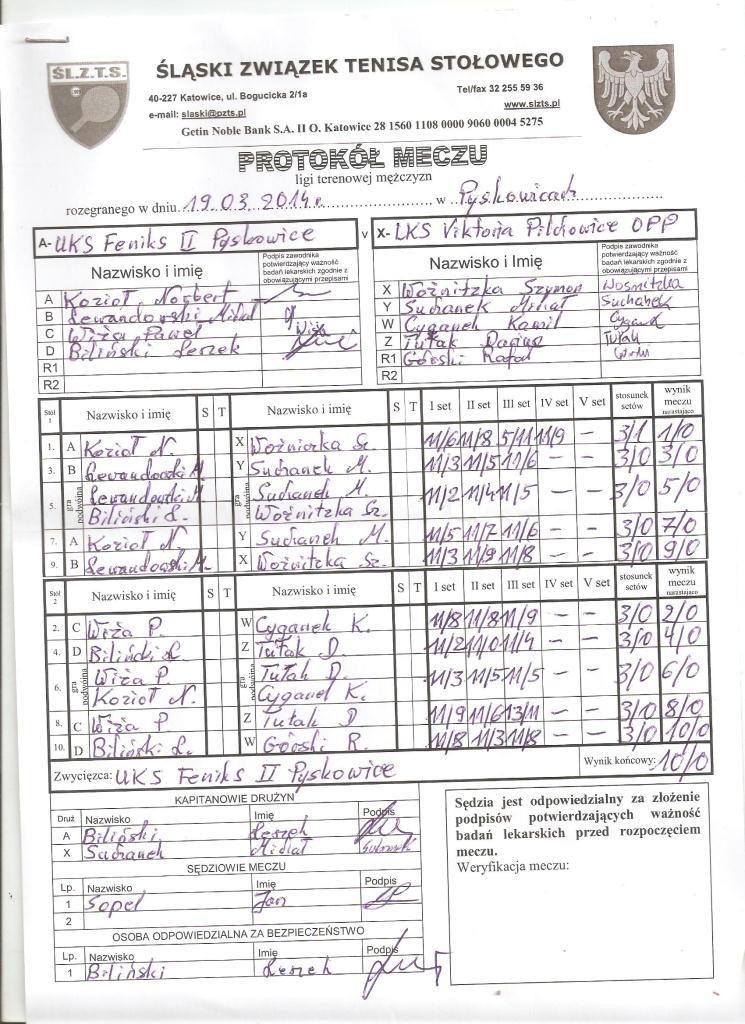 ŚL.Z.T.S.
ŚLĄSKI ZWIĄZEK TENISA STOŁOWEGO
40-227 Katowice, ul. Bogucicka 2/1a Tel/fax 32 255 59 36
e-mail: slaski@pzts.pl www.slzts.pl
Getin Noble Bank S.A. II O. Katowice 28 1560 1108 0000 9060 0004 5275
PROTOKÓŁ MECZU
ligi terenowej mężczyzn
rozegranego w dniu 19.03.2014r. w Pyskowicach
A- UKS Feniks II Pyskowice v X- LKS Viktoria Pilchowice OPP
Nazwisko i imię Podpis zawodnika potwierdzający ważność badań lekarskich zgodnie z obowiązującymi przepisami Nazwisko i Imię Podpis zawodnika potwierdzający ważność badań lekarskich zgodnie z obowiązującymi przepisami
A Kozioł Norbert X Woźnitzka Szymon Wosnitzka
B Lewandowski Michał Y Suchanek Michał Suchanek
C Wiża Paweł Wiża W Cyganek Kamil
D Biliński Leszek Z Tutak Dariusz Tutak
R1 R1 Górski Rafał
R2 R2
Stół 1 Nazwisko i imię S T Nazwisko i imię S T I set II set III set IV set V set stosunek setów wynik meczu narastająco
1. A Kozioł N. X Woźniczka Sz. 11/6 11/8 5/11 11/9 – 3/1 1/0
3. B Lewandowski M. Y Suchanek M. 11/3 11/5 11/6 – – 3/0 3/0
5. gra podwójna Lewandowski M. gra podwójna Suchanek M. 11/2 11/4 11/5 – – 3/0 5/0
Biliński L. Woźnitzka Sz.
7. A Kozioł N. Y Suchanek M. 11/5 11/7 11/6 – – 3/0 7/0
9. B Lewandowski M. X Woźnitzka Sz. 11/3 11/9 11/8 – – 3/0 9/0
Stół 2 Nazwisko i imię S T Nazwisko i imię S T I set II set III set IV set V set stosunek setów wynik meczu narastająco
2. C Wiża P. W Cyganek K. 11/8 11/8 11/9 – – 3/0 2/0
4. D Biliński L. Z Tutak D. 11/2 11/0 11/4 – – 3/0 4/0
6. gra podwójna Wiża P. gra podwójna Tutak D. 11/3 11/5 11/5 – – 3/0 6/0
Kozioł N. Cyganek K.
8. C Wiża P Z Tutak D 11/9 11/6 13/11 – – 3/0 8/0
10. D Biliński L. W Górski R. 11/8 11/3 11/8 – – 3/0 10/0
Zwycięzca: UKS Feniks II Pyskowice Wynik końcowy: 10/0
KAPITANOWIE DRUŻYN
Druż Nazwisko Imię Podpis
A Biliński Leszek
X Suchanek Michał
SĘDZIOWIE MECZU
Lp. Nazwisko Imię Podpis
1 Sopel Jan
2
OSOBA ODPOWIEDZIALNA ZA BEZPIECZEŃSTWO
Lp. Nazwisko Imię Podpis
1 Biliński Leszek
Sędzia jest odpowiedzialny za złożenie
podpisów potwierdzających ważność
badań lekarskich przed rozpoczęciem
meczu.
Weryfikacja meczu: